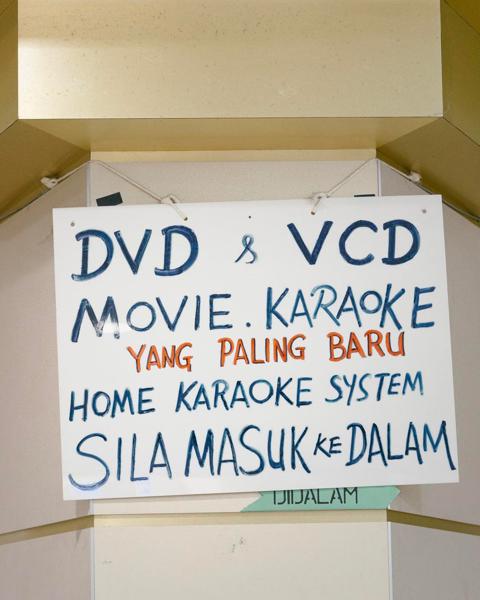 DVD & VCD
MOVIE. KARAOKE
YANG PALING BARU
HOME KARAOKE SYSTEM
SILA MASUK KE DALAM
DIDALAM